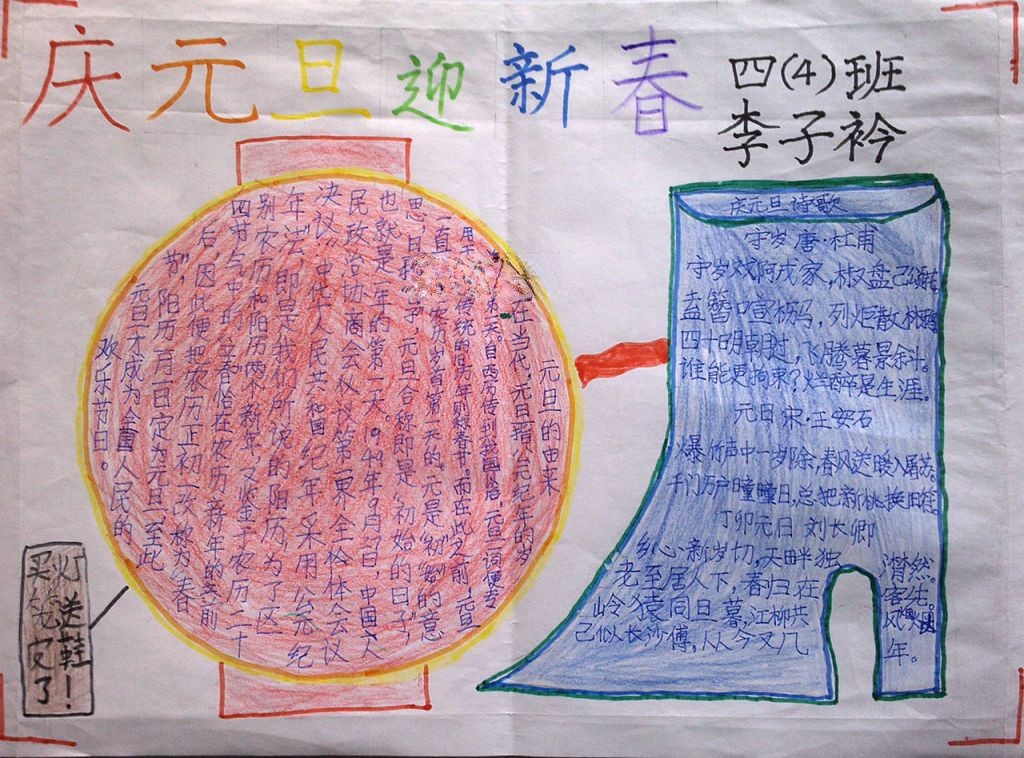 庆元旦迎新春
四(4)班
李子衿
元旦的由来
在当代,元旦指公元纪年的岁
第一天。自西历传到我国以后,元旦一词便专
用于 传统的旧历年则称春节。而在此之前,元旦
一直 农历岁首第一天的。元是“初”“始”的意
思,旦指 日子,元旦合称即是“初始的日子”,
也就是一年的第一天。1949年9月27日,中国人
民政治协商会议第一界全体会议
决议:“中华人民共和国纪年采用公元纪
年法”,即是我们所说的阳历,为了区
别农历和阳历两个新年,又鉴于农历二十
四节气中的“立春”恰在农历新年的前
后,因此便把农历正初一改称为“春
节”,阳历一月一日定为元旦,至此
元旦才成为全国人民的
欢乐节日。
庆元旦诗歌
守岁 唐·杜甫
守岁戏阿戎家,椒盘已颂花
盍簪 枥马,列炬散林鸦
四十明朝过,飞腾暮景斜。
谁能更拘束?烂醉是生涯。
元日 宋·王安石
爆竹声中一岁除,春风送暖入屠苏。
千门万户曈曈日,总把新桃换旧符
丁卯元日 刘长卿
乡心新岁切,天畔独潸然。
老至居人下,春归在客先。
岭猿同旦暮,江柳共风烟
已似长沙傅,从今又几年。
买灯
笼送
又鞋
了!